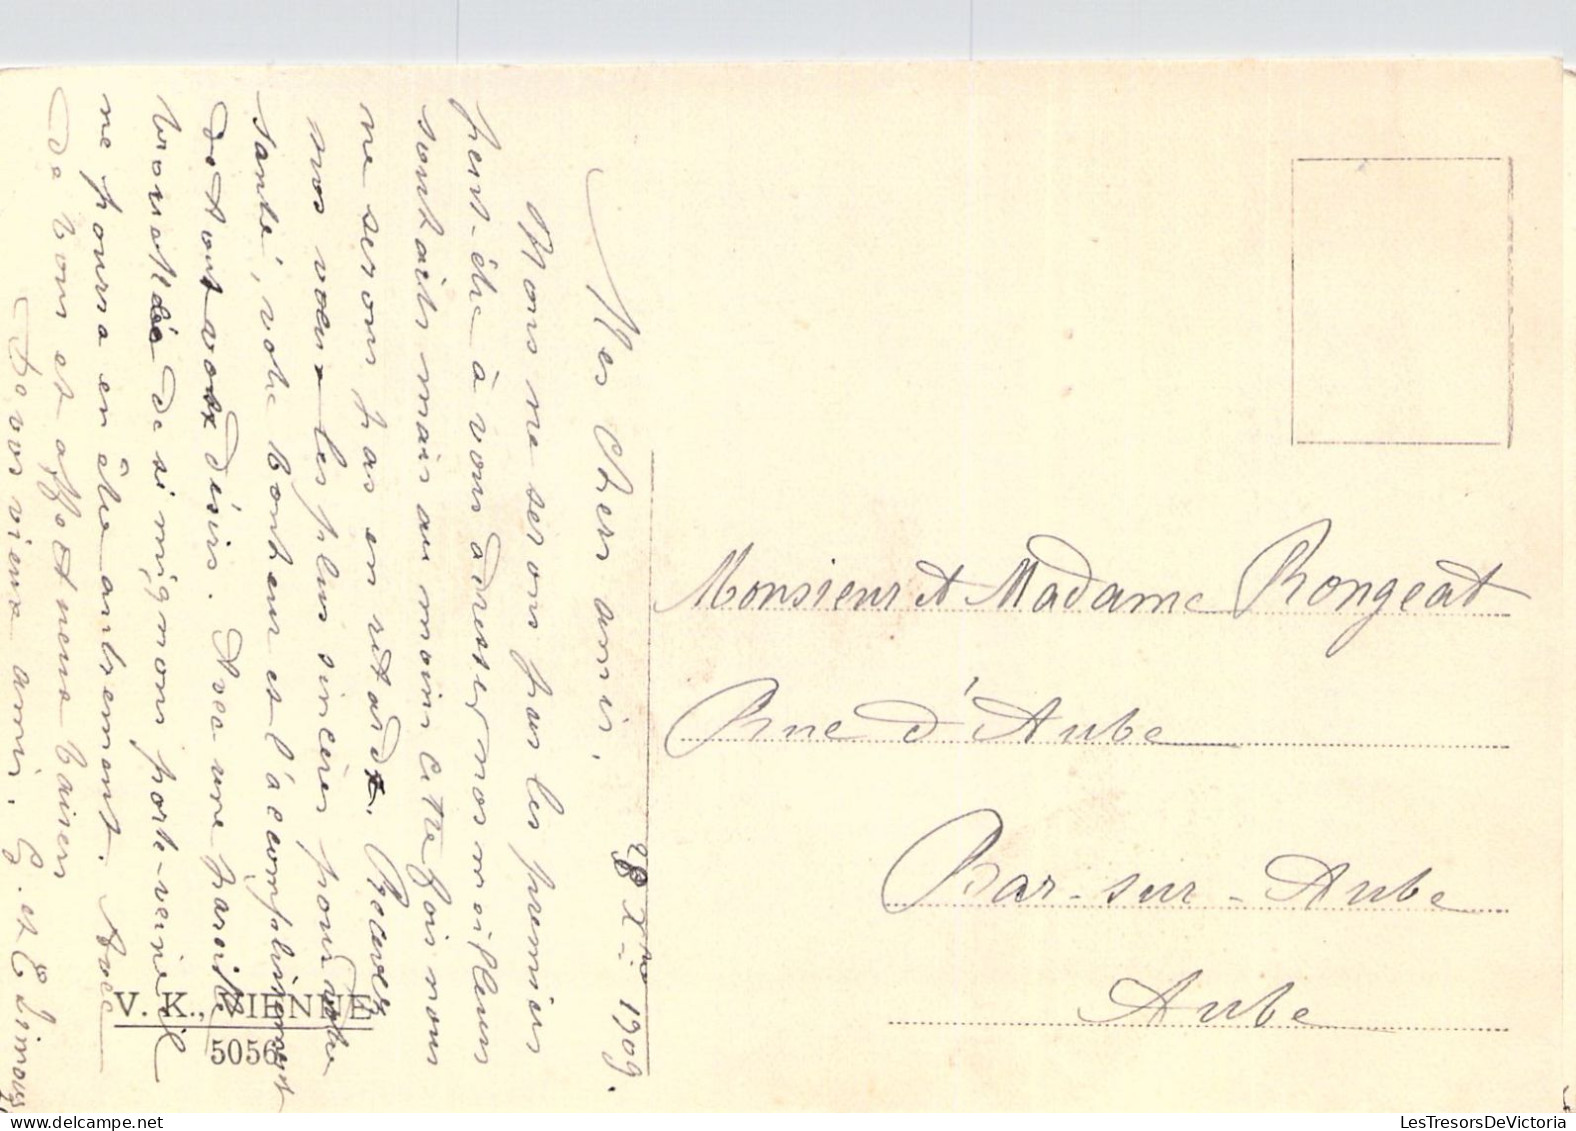 Mes chers amis.
8 Xbre 1909.
Nous ne serons pas les premiers
peut-être à vous adresser nos meilleurs
souhaits mais au moins cette fois nous
ne serons pas en retard. Recevez
nos voeux les plus sincères pour votre
santé, votre bonheur et l'accompliment
de tout vos désirs. Avec une pareille
de si mignons porte-veine il
ne pourra en être autrement. Avec
de bons et affectueux baisers
de vos vieux amis. G. et E Limous
Monsieur et Madame Rongeat
Rue d'Aube
Bar-sur-Aube
Aube
V. K., VIENNE
5056
LesTresorsDeVictoria